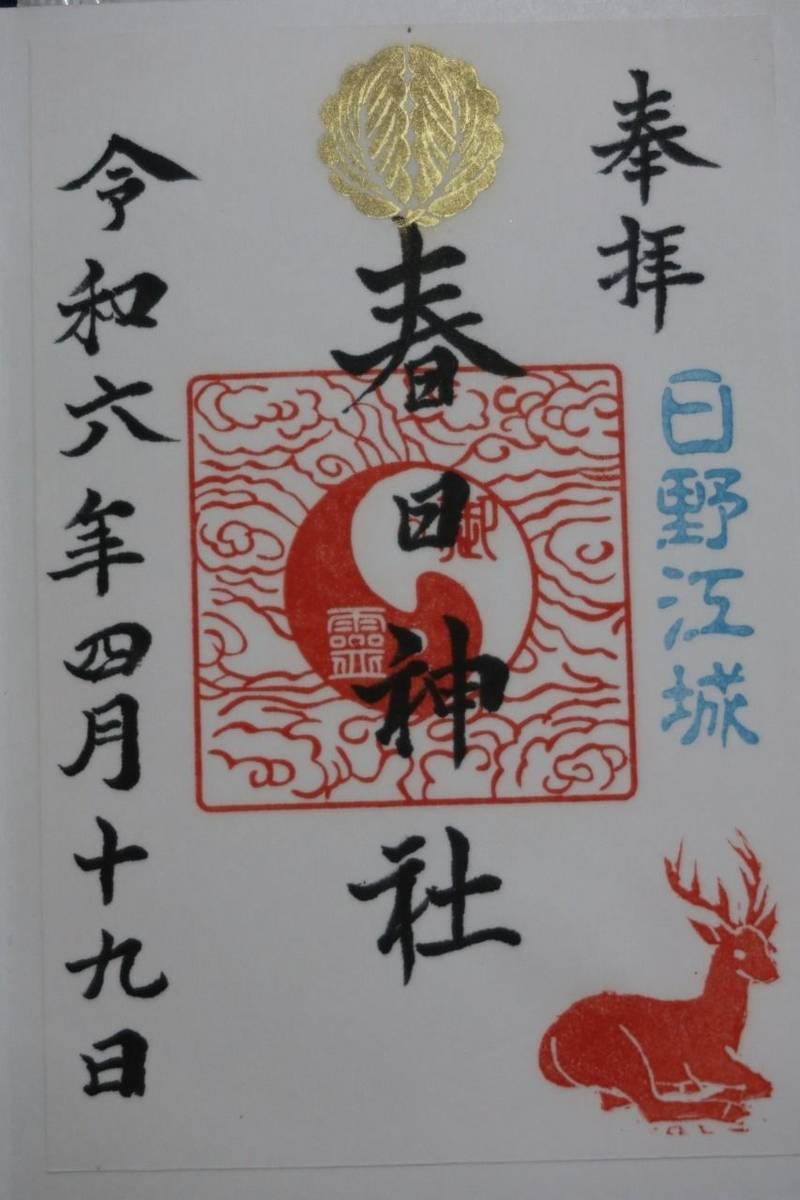 奉拝
日野江城
春日神社
御
靈
令和六年四月十九日